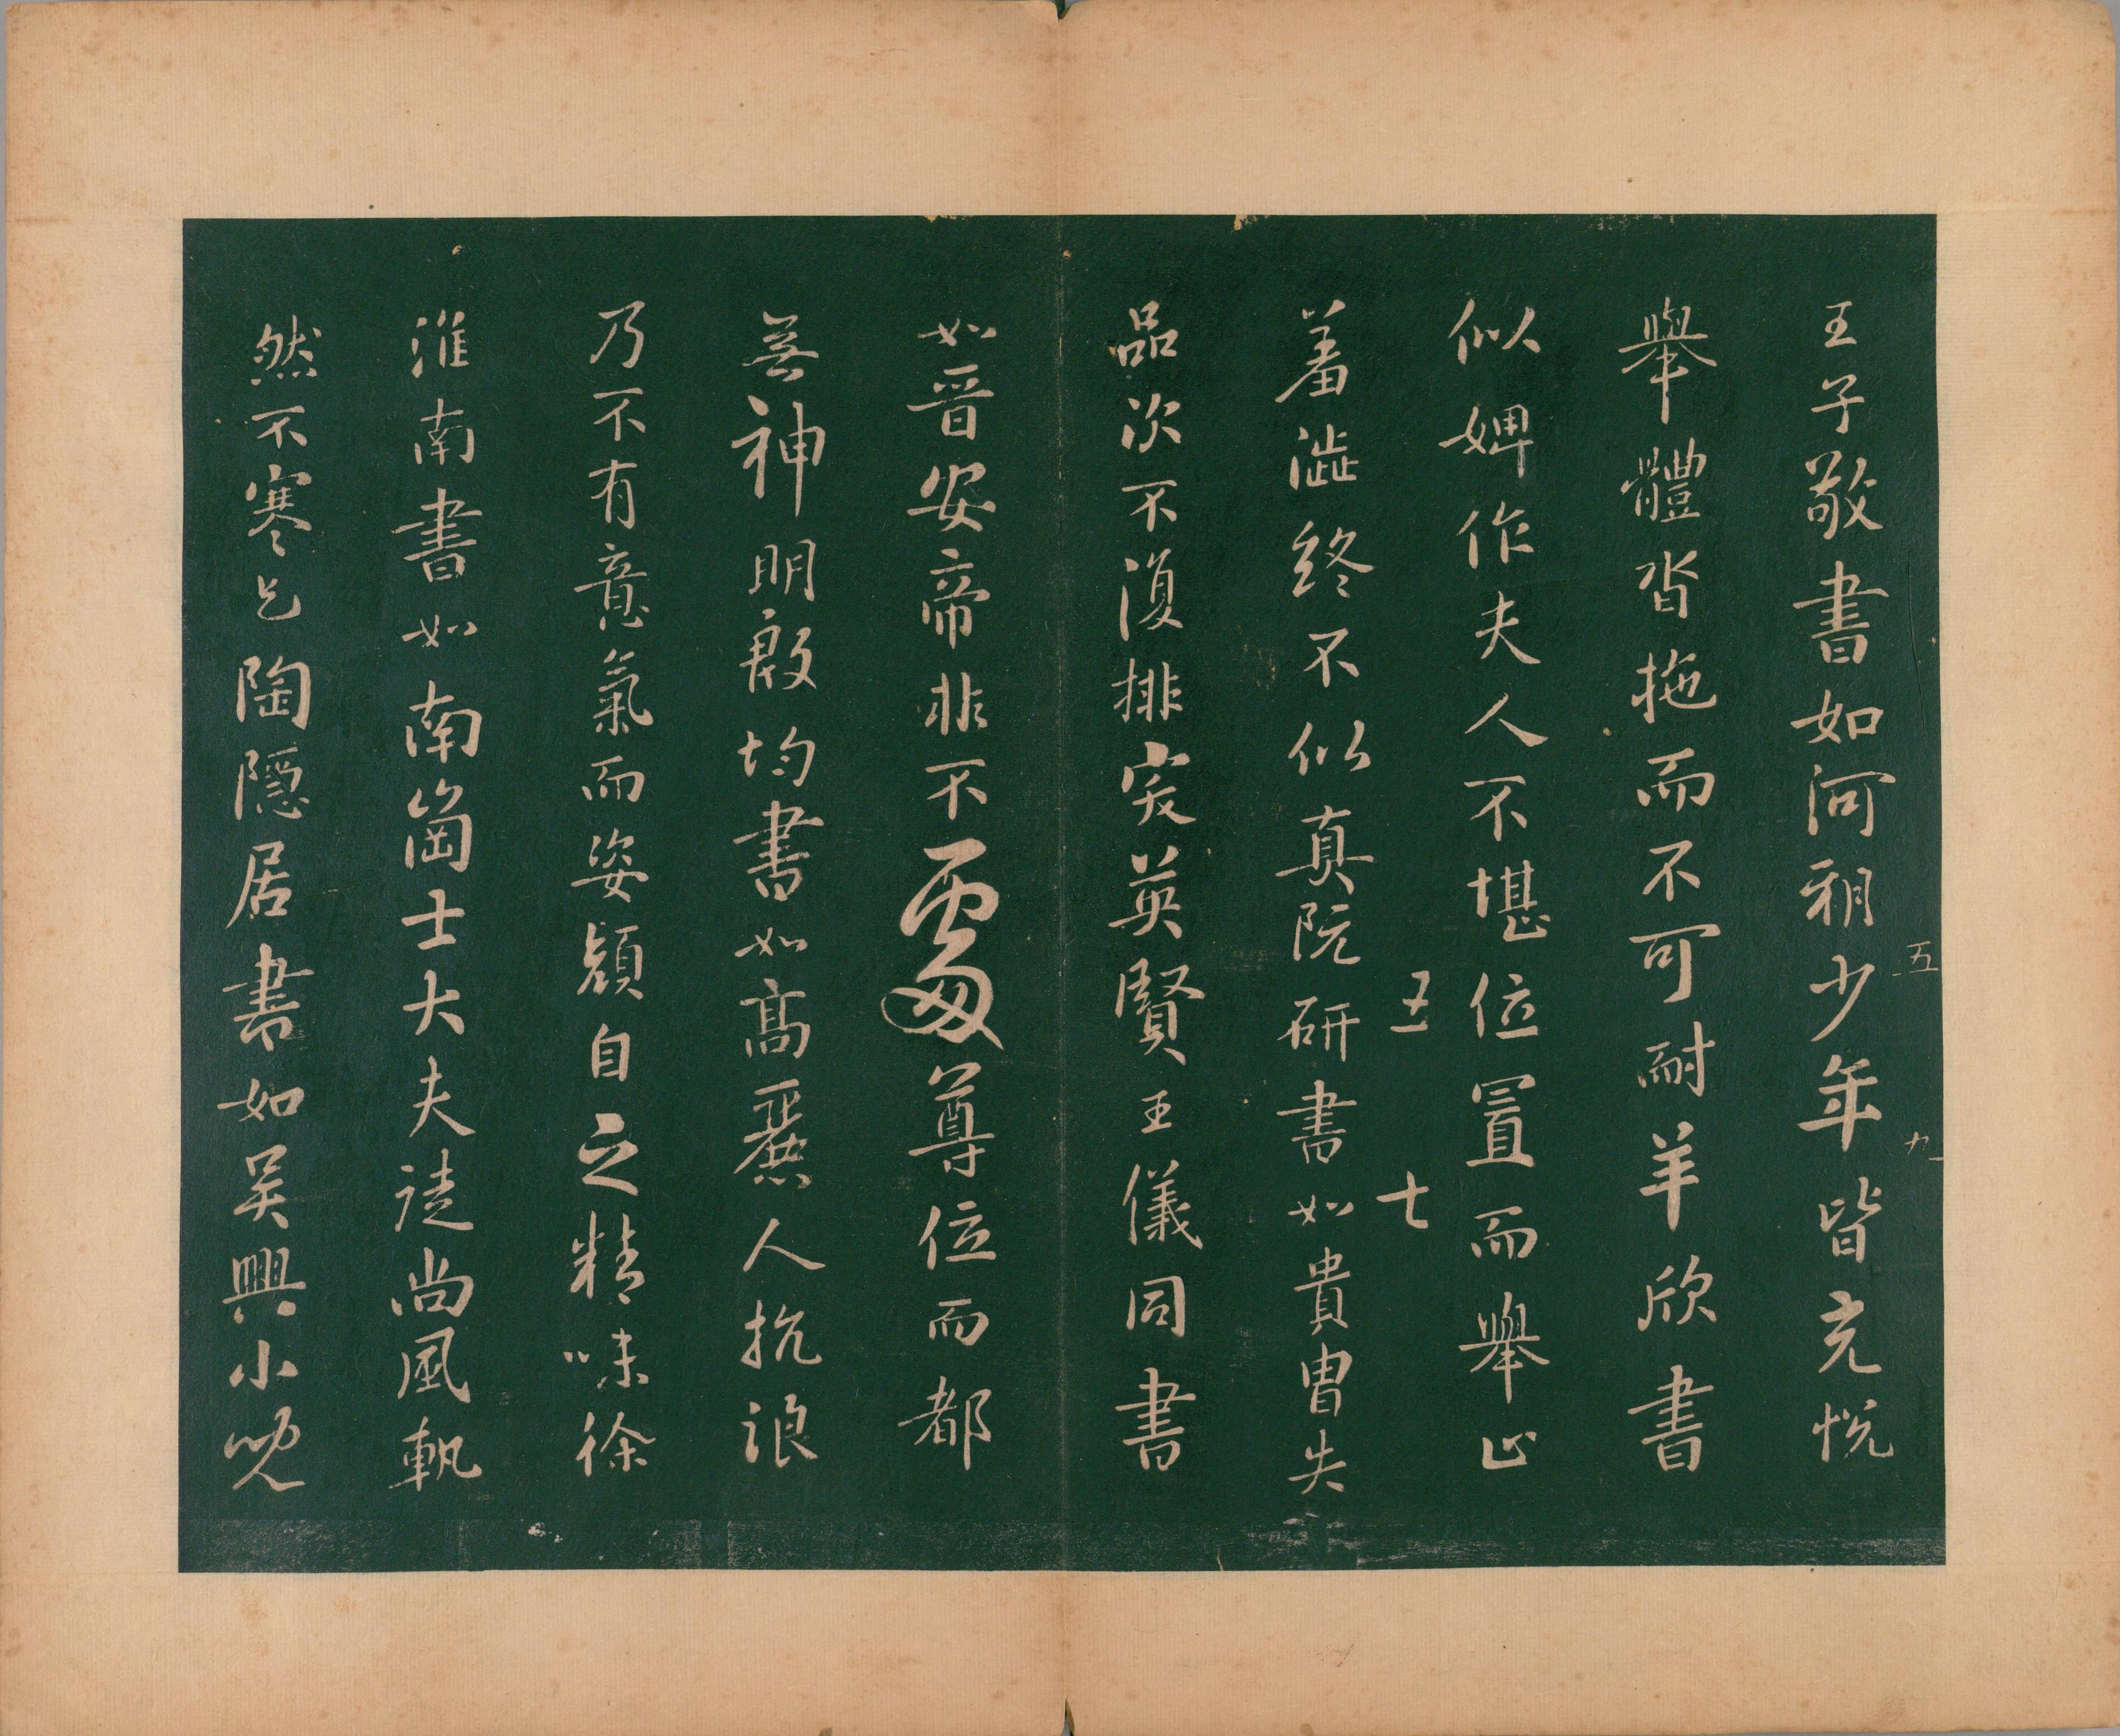 王子敬書如河朔少年皆充悅
舉體沓拖而不可耐羊欣書
似婢作夫人不堪位置而舉止
羞澁終不似真阮研書如貴胄失
品次不復排突英賢王儀同書
如晉安帝非不處尊位而都
無神明殷均書如高麗人抗浪
乃不有意氣而姿顏自之精味徐
淮南書如南岡士大夫徒尚風軌
然不寒乞陶隱居書如吳興小兒
五
九
五
七